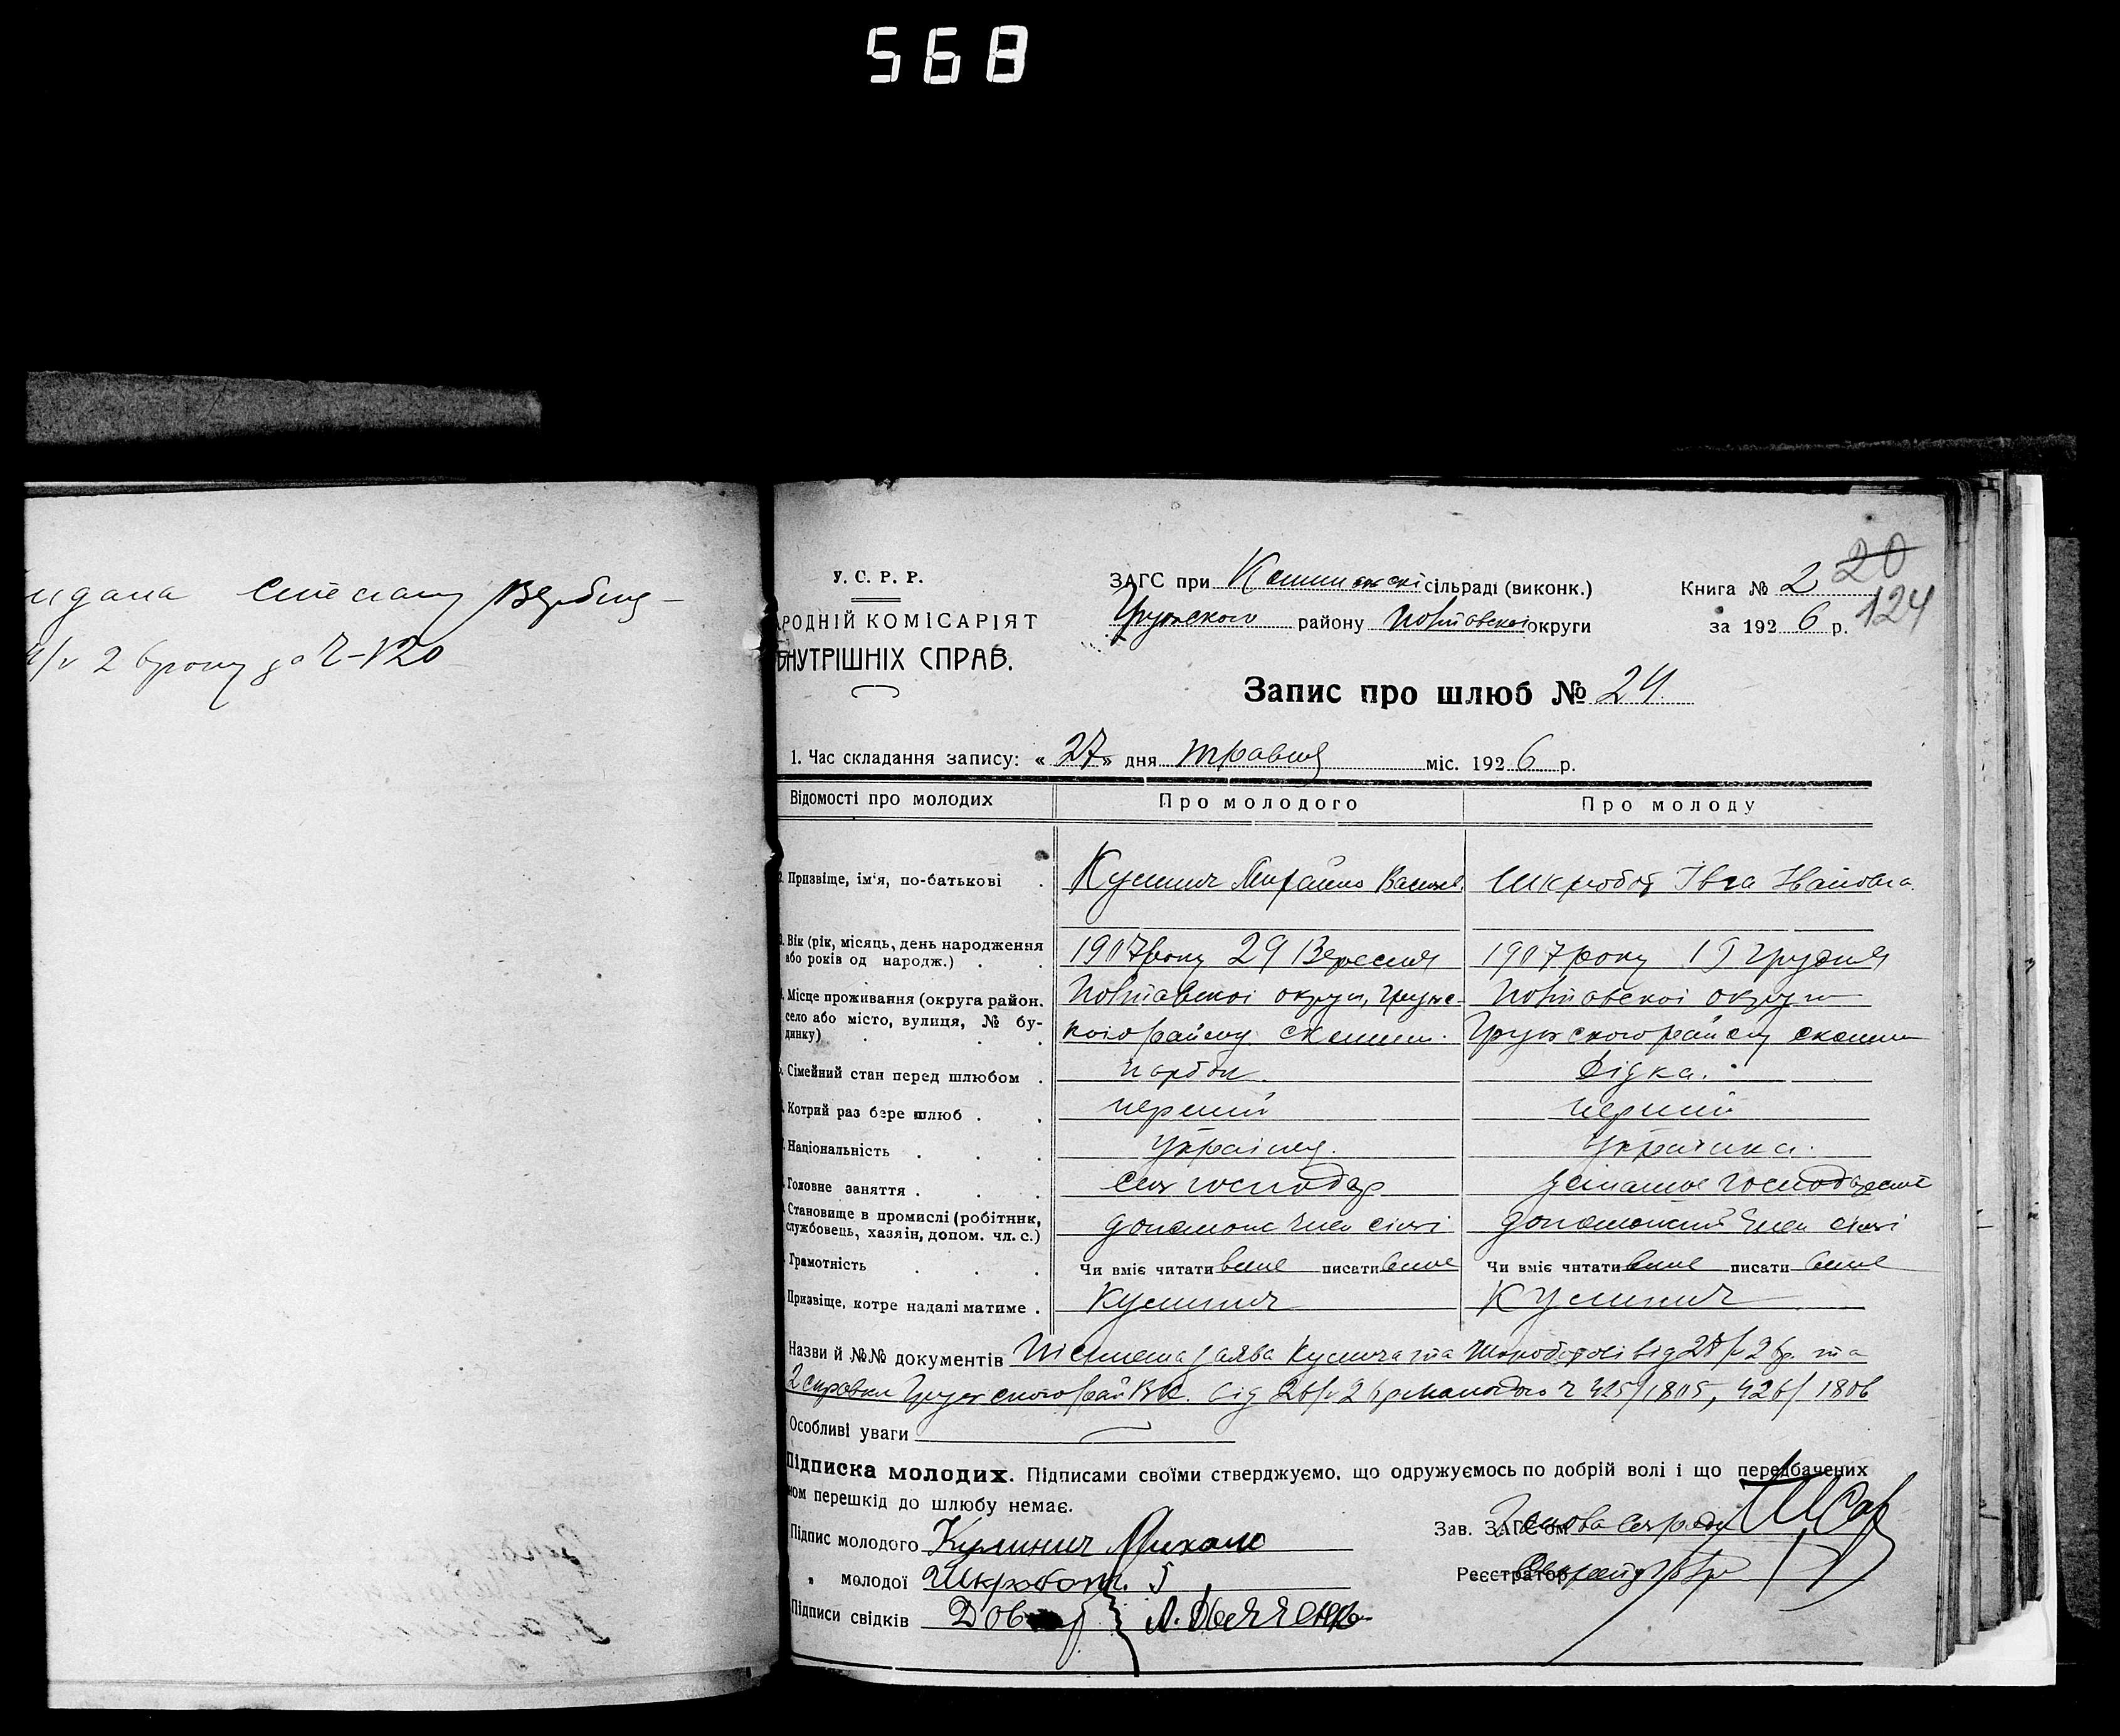 568
Степану Вербиц-
2 6року до Ч-120
У. С. Р. Р.
РОДНІЙ КОМІСАРІЯТ
ВНУТРІШНІХ СПРАВ.
ЗАГС при сільраді (виконк.)
Грунського району Полтавскоі округи
Книга № 2 20
за 1926 р. 124
Запис про шлюб № 24.
1. Час складання запису: « 27 » дня травня міс. 1926 р.
Відомості про молодих Про молодого Про молоду
2. Призвіще, ім'я, по-батькові . Кулинич Михайло Васильв. Шкробот Івга Івановна.
3. Вік (рік, місяць, день народження
або років од народж.) . . 1907року 29 Вересня 1907року 19 Грудня
Місце проживання (округа район.
село або місто, вулиця, № бу-
динку) . . . Полтавскоі округи, Грунс-
кого району Полтавскоі округи
Грунского району
Сімейний стан перед шлюбом . парубок дівка.
Котрий раз бере шлюб . . перший перший
Національність . . . Украінец. Украінка.
Головне заняття . . . господар господарстві
Становище в промислі (робітник,
службовець, хазяїн, допом. чл. с.) допомож член сімі допоможний член сімі
Грамотність . . . Чи вміє читати вміє писати вміє Чи вміє читати вміє писати вміє
Призвіще, котре надалі матиме . Кулинич Кулинич
Назви й №№ документів Письмена заява Кулинича та від 2 6р. та
2 справки Грунского рай ВК. від 26/v 26р Ч 425/1805, 426/1806
Особливі уваги
Підписка молодих. Підписами своїми стверджуємо, що одружуємось по добрій волі і що передбачених
ном перешкід до шлюбу немає.
Підпис молодого Кулинич Михайло
Зав. ЗАГС'ом Голова сільради
„ молодої Шкробот. Є
Реєстратор Секретар
Підписи свідків